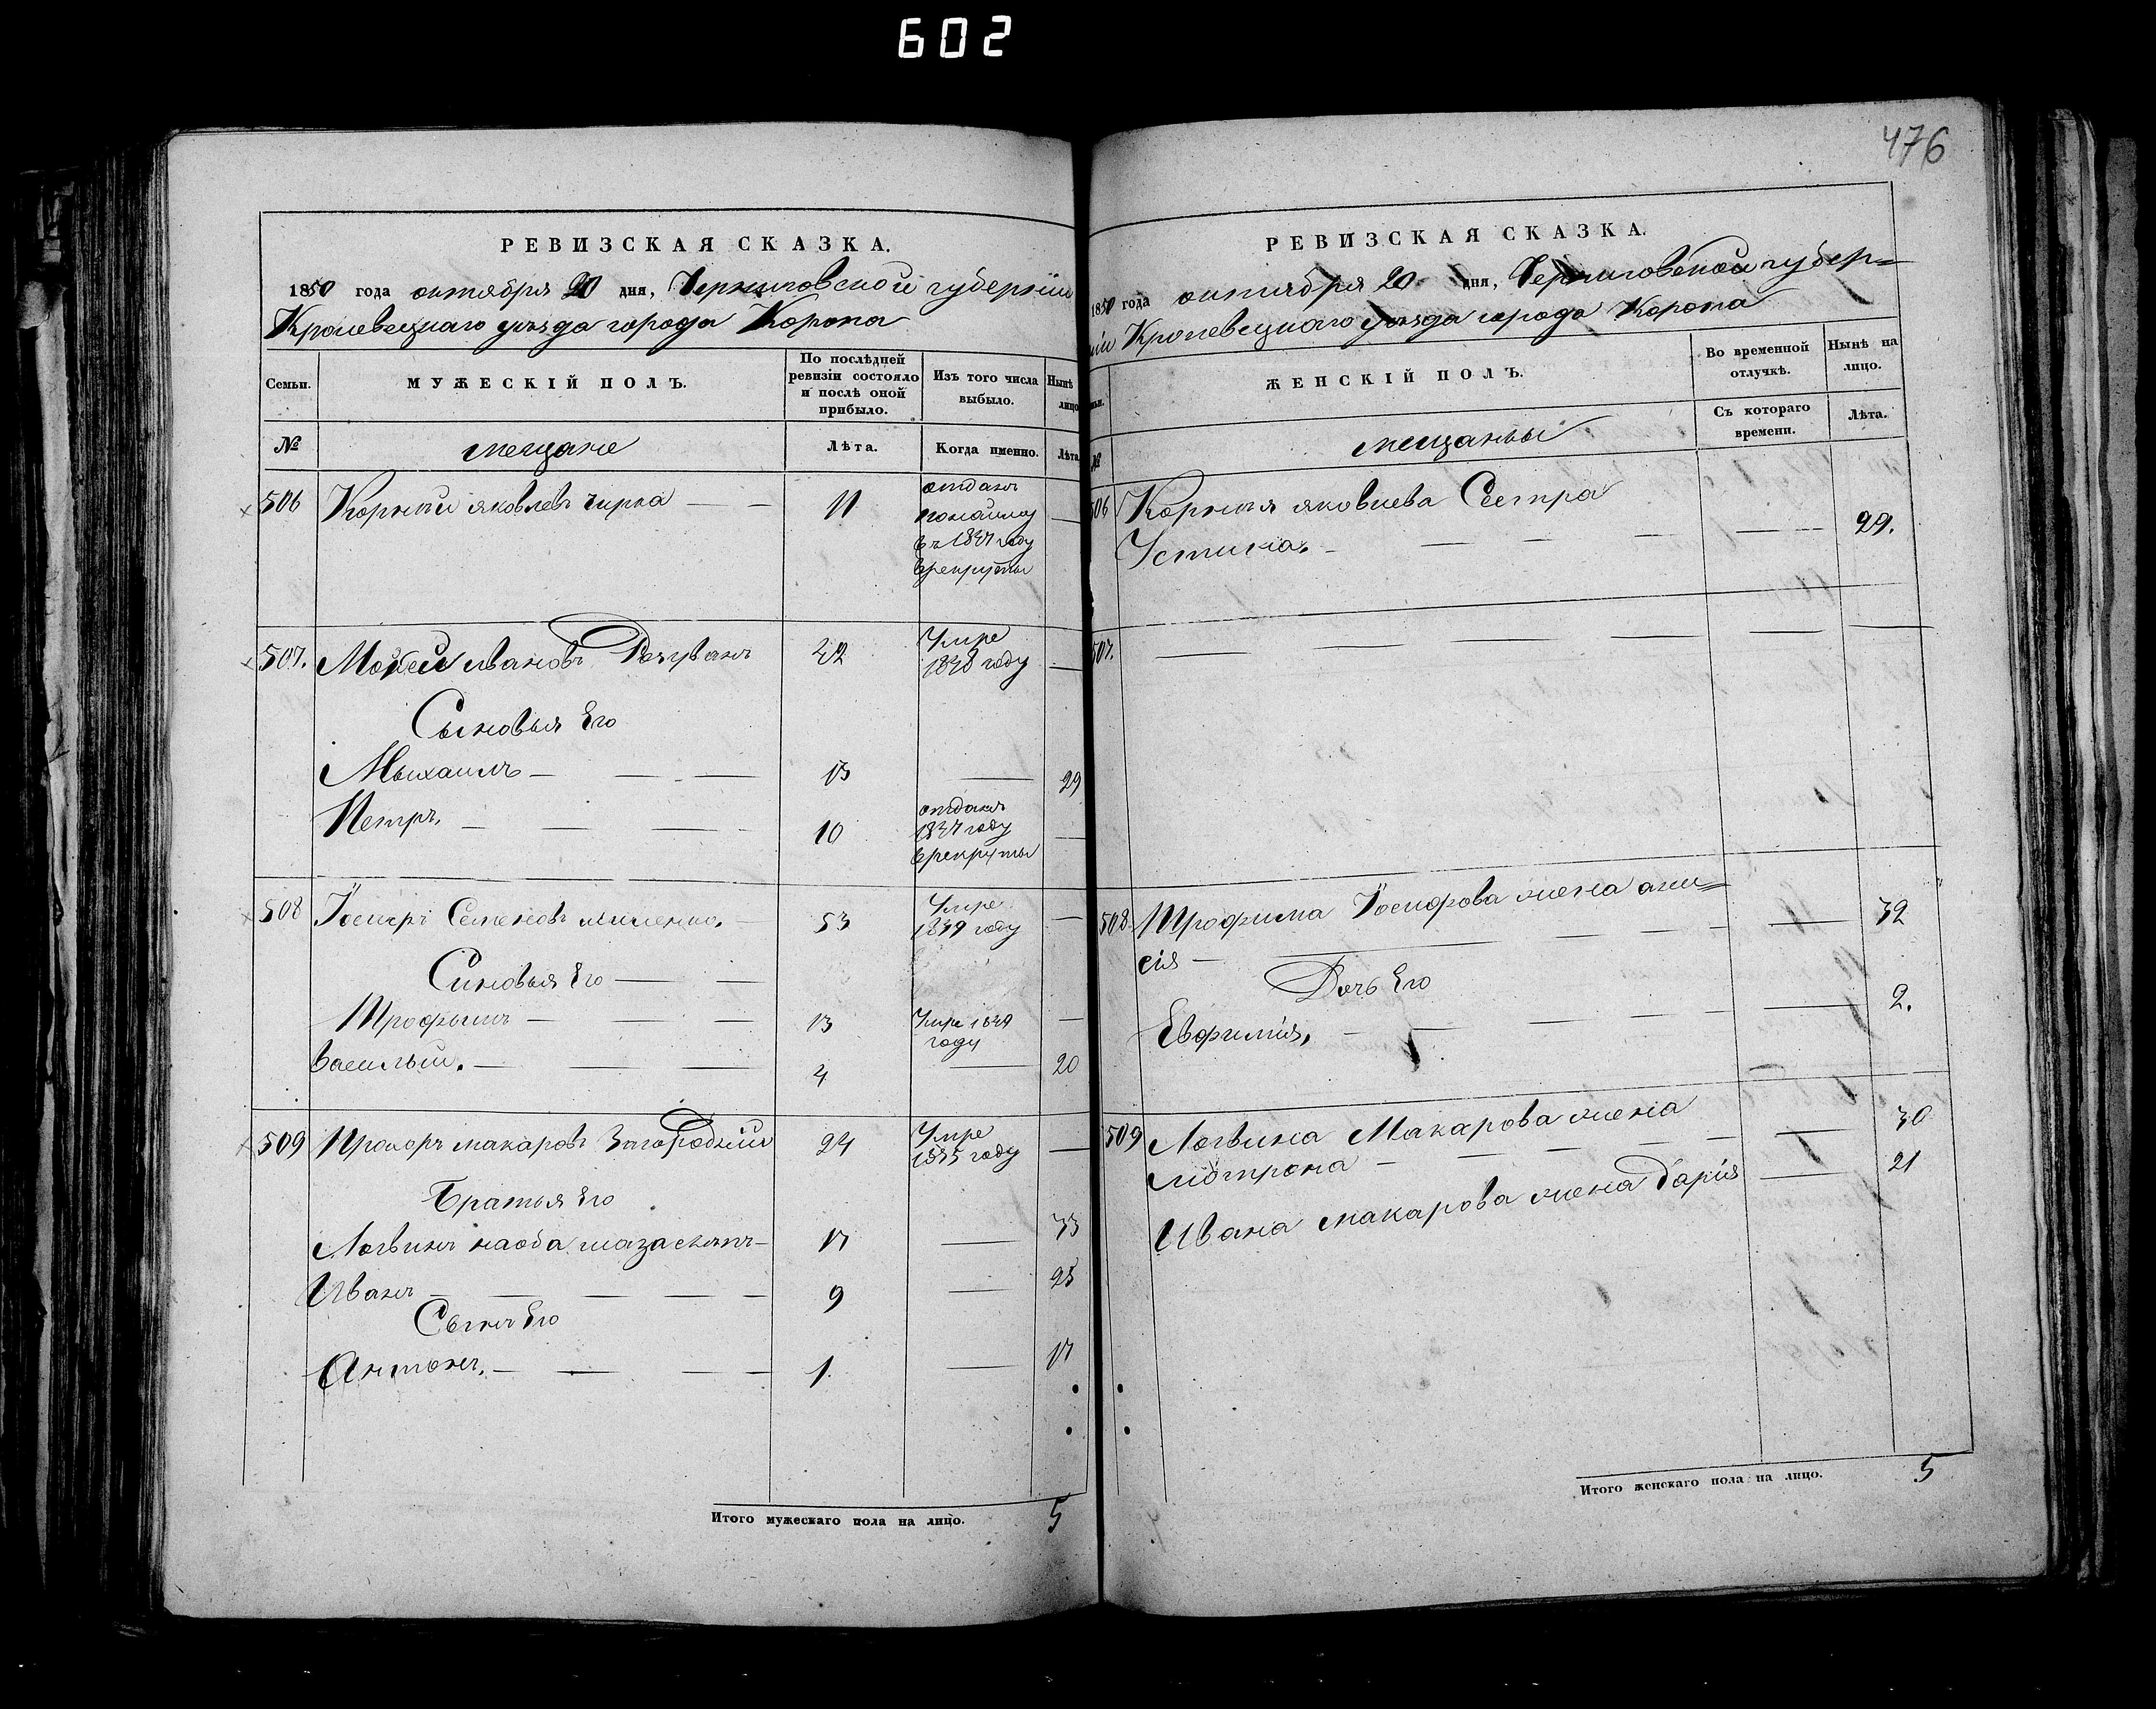 602
476
РЕВИЗСКАЯ СКАЗКА.
1850 года октября 20 дня, Черниговской губерніи
Кролевецкаго уезда города Коропа
Семьи.
МУЖЕСКІЙ ПОЛЪ.
По послѣдней ревизіи состояло и послѣ оной прибыло.
Изъ того числа выбыло.
Нынѣ лицо
№
мещане
Лѣта.
Когда именно.
Лѣта
506 Корнѣй яковлевъ чирка 11
отданъ
понайму
въ 1837 году
врекруты
507. Мойсей ивановъ 42
Умре
1838 году
Сыновья Его
Мыхаилъ 13 29
Петръ, 10
отданъ
1837 году
врекруты
508 Іосифъ Семеновъ 53
Умре
1839 году
Синовья Его
Трофымъ 13
Умре 1849
году
Васильй. 4 20
509 Прохоръ макаровъ Загородній 24
Умре
1835 году
Братья Его
Логвинъ наоба глаза слѣпъ 17 33
Иванъ 9 25
Сынъ Его
Антонъ, 1. 17
Итого мужескаго пола на лицо. 5
РЕВИЗСКАЯ СКАЗКА.
1850 года октября 20 дня, Черниговской губер=
ніи Кролевецкаго уезда города Коропа
ЖЕНСКІЙ ПОЛЪ.
Во временной отлучкѣ.
Нынѣ на лицо.
№
мещанки
Съ котораго времени.
Лѣта.
506 Корнѣя яковлева Сестра
Устина. 29.
507.
508 Трофима Іосифова жена ани= 32
сія
Дочь Его
Евфимія, 2.
509 Логвина Макарова жена 30
Мотрона
Ивана макарова жена дарія 21
Итого женскаго пола на лицо. 5